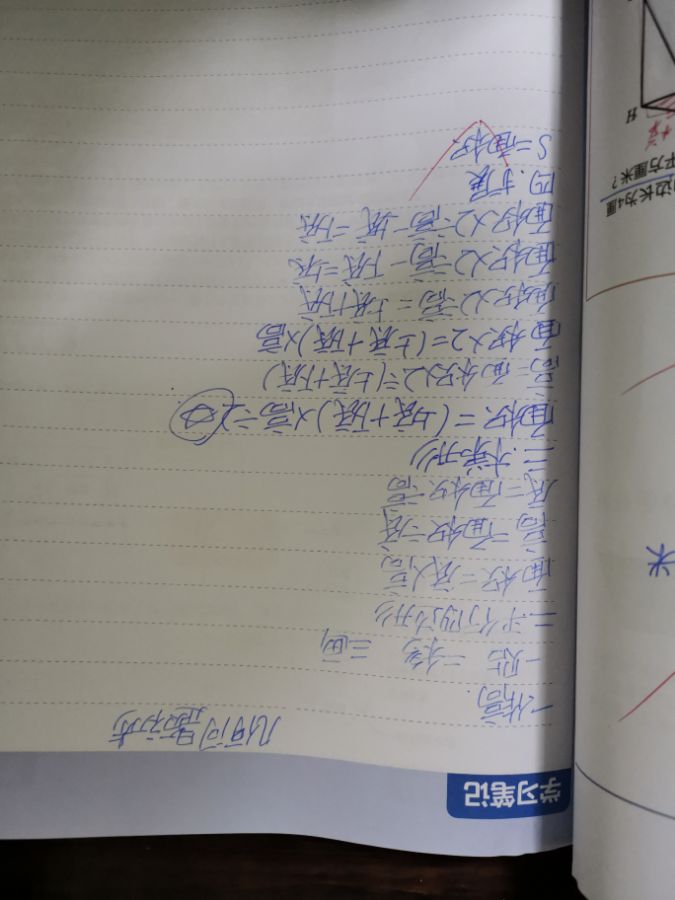 学习笔记
几何问题方法
一.作高.
一贴 二移 三画
二.平行四边形
面积=底×高
高=面积÷底
底=面积÷高
三.梯形
面积=(上底+下底)×高÷2
高=面积×2÷(上底+下底)
面积×2=(上底+下底)×高
面积×2÷高=上底+下底
面积×2÷高-下底=上底
面积×2÷高-上底=下底
四.扩展
S=面积
边长为4厘
平方厘米?
H
米